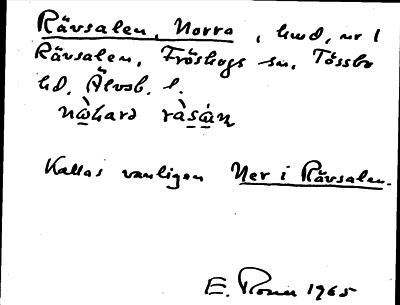 Rävsalen, Norra, hmd, nr 1
Rävsalen, Fröskogs sn, Tössbo
hd, Älvsb. l.
Kallas vanligen Ner i Rävsalen.
E. 1965